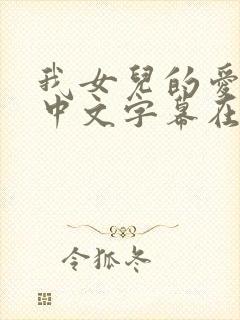 我女兒的愛
中文字幕在
令狐冬